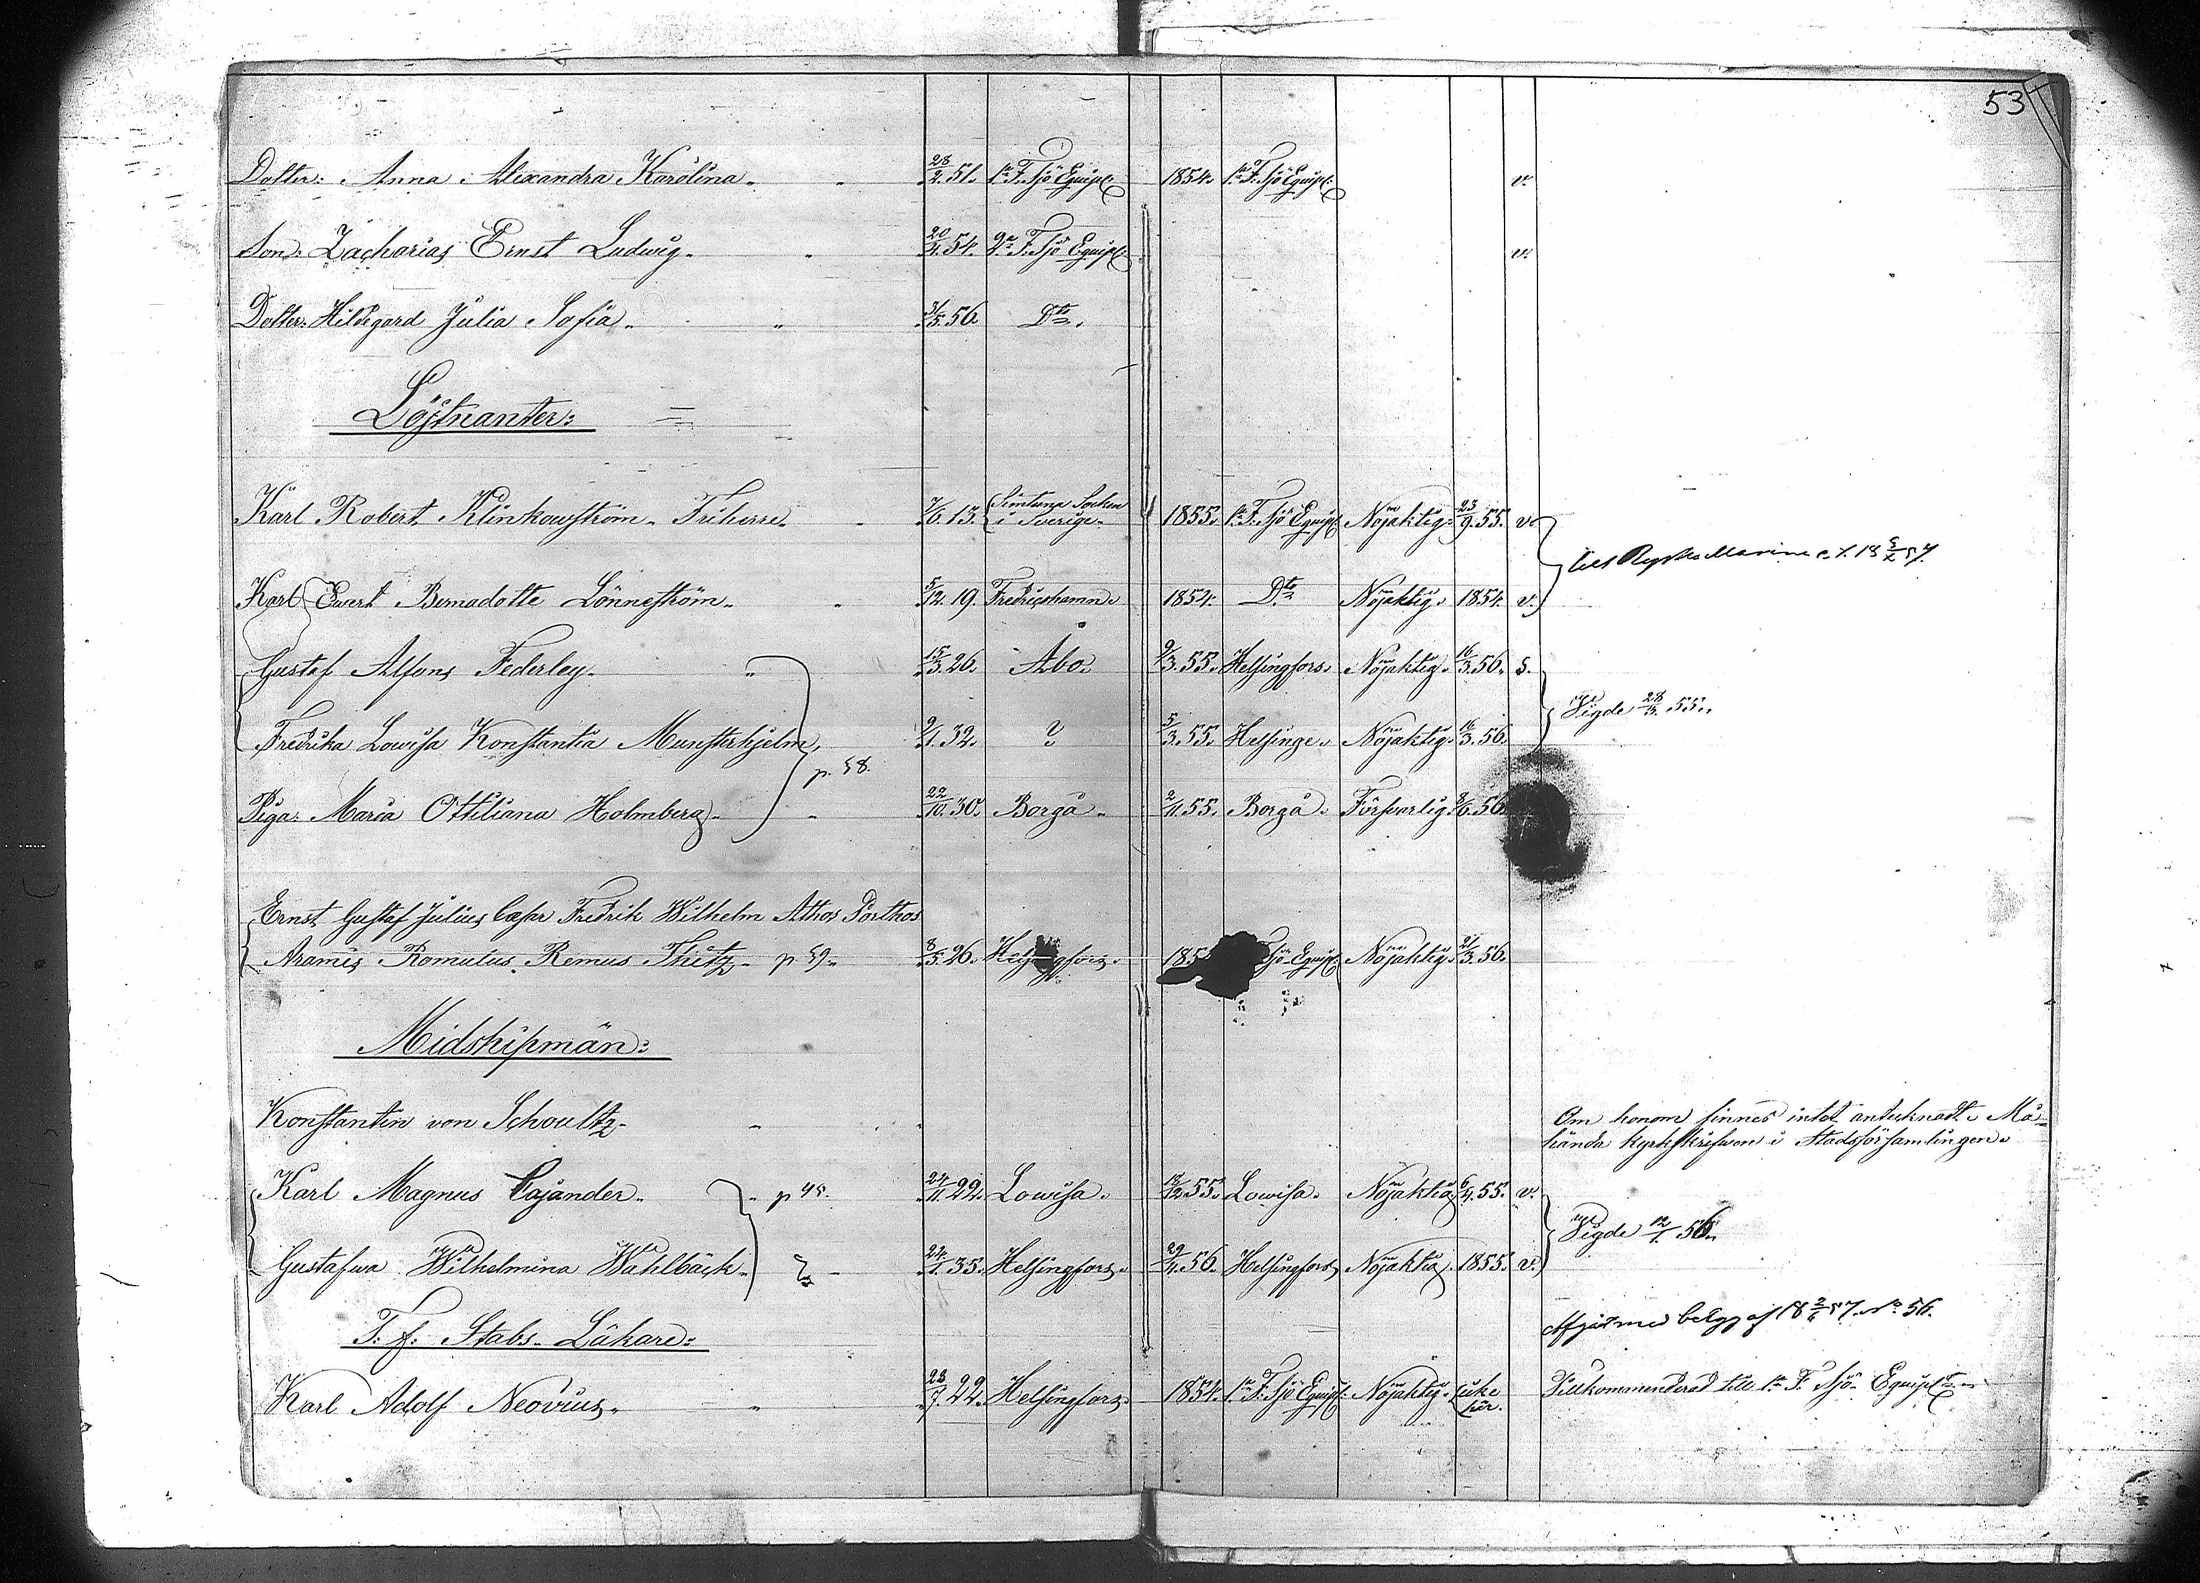 53
Dotter: Anna Alexandra Karolina. 28/2.51. 1a F. Sjö Equip: 1854. 1a F. Sjö Equip: v.
Son: Zacharias Ernst Ludvig. 20/4.54. 2a F. Sjö Equip: v.
Dotter: Hildegard Julia Sofia. 3/5.56. Dto.
Löjtnanter:
Karl Robert Klinkowström. Friherre. 7/6.13. Simtuna Socken i Sverige. 1855. 1a F. Sjö Equip: Nöjaktig. 23/9.55. v.
till Ryska Marine
Karl Ewert Bernadotte Lönneström. 5/12.19. Fredricshamn. 1854. Dto Nöjaktig. 1854. v.
Gustaf Alfons Federley. 15/3.26. Åbo. 9/3.55. Helsingfors. Nöjaktig. 16/3.56. s.
Vigde 28/3.55.
Fredrika Lowisa Konstantia Munsterhjelm. 9/1.32. ? 5/3.55. Helsinge. Nöjaktig. 16/3.56.
p. 58.
Piga: Maria Ottiliana Holmberg. 22/10.30. Borgå. 2/11.55. Borgå. Försvarlig. 8/6.56.
Ernst Gustaf Julius Cæsar Fredrik Wilhelm Athos Porthos
Aramis Romulus Remus Thitz. p. 59. 8/5.26. Helsingfors. 185 Sjö Equip: Nöjaktig. 21/3.56.
Midshipmän:
Konstantin von Schoultz.
Om honom finnes intet antecknadt. Må-
hända kyrkskrifven i Stadsförsamlingen.
Karl Magnus Cajander. p 45. 24/11.22. Lowisa. 15/12.55. Lowisa. Nöjaktig 6/4.55. v.
Vigde 12/1.56.
Gustafwa Wilhelmina Wahlbäck. 24/1.35. Helsingfors. 29/4.56. Helsingfors Nöjaktig. 1855. v.
T. f. Stabs-Läkare:
Afgått med betyg af 18 2/6 57. No 56.
Karl Adolf Neovius. 28/7.22. Helsingfors. 1854. 1a F. Sjö Equip: Nöjaktig. icke här. Tillkommenderad till 1a F. Sjö Equip